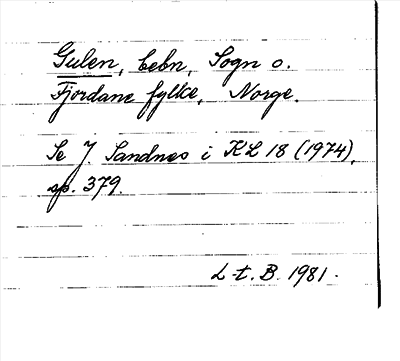 Gulen, bebn, Sogn o.
Fjordane fylke, Norge.
Se J. Sandnes i KL 18 (1974),
sp. 379.
L-t. B. 1981.